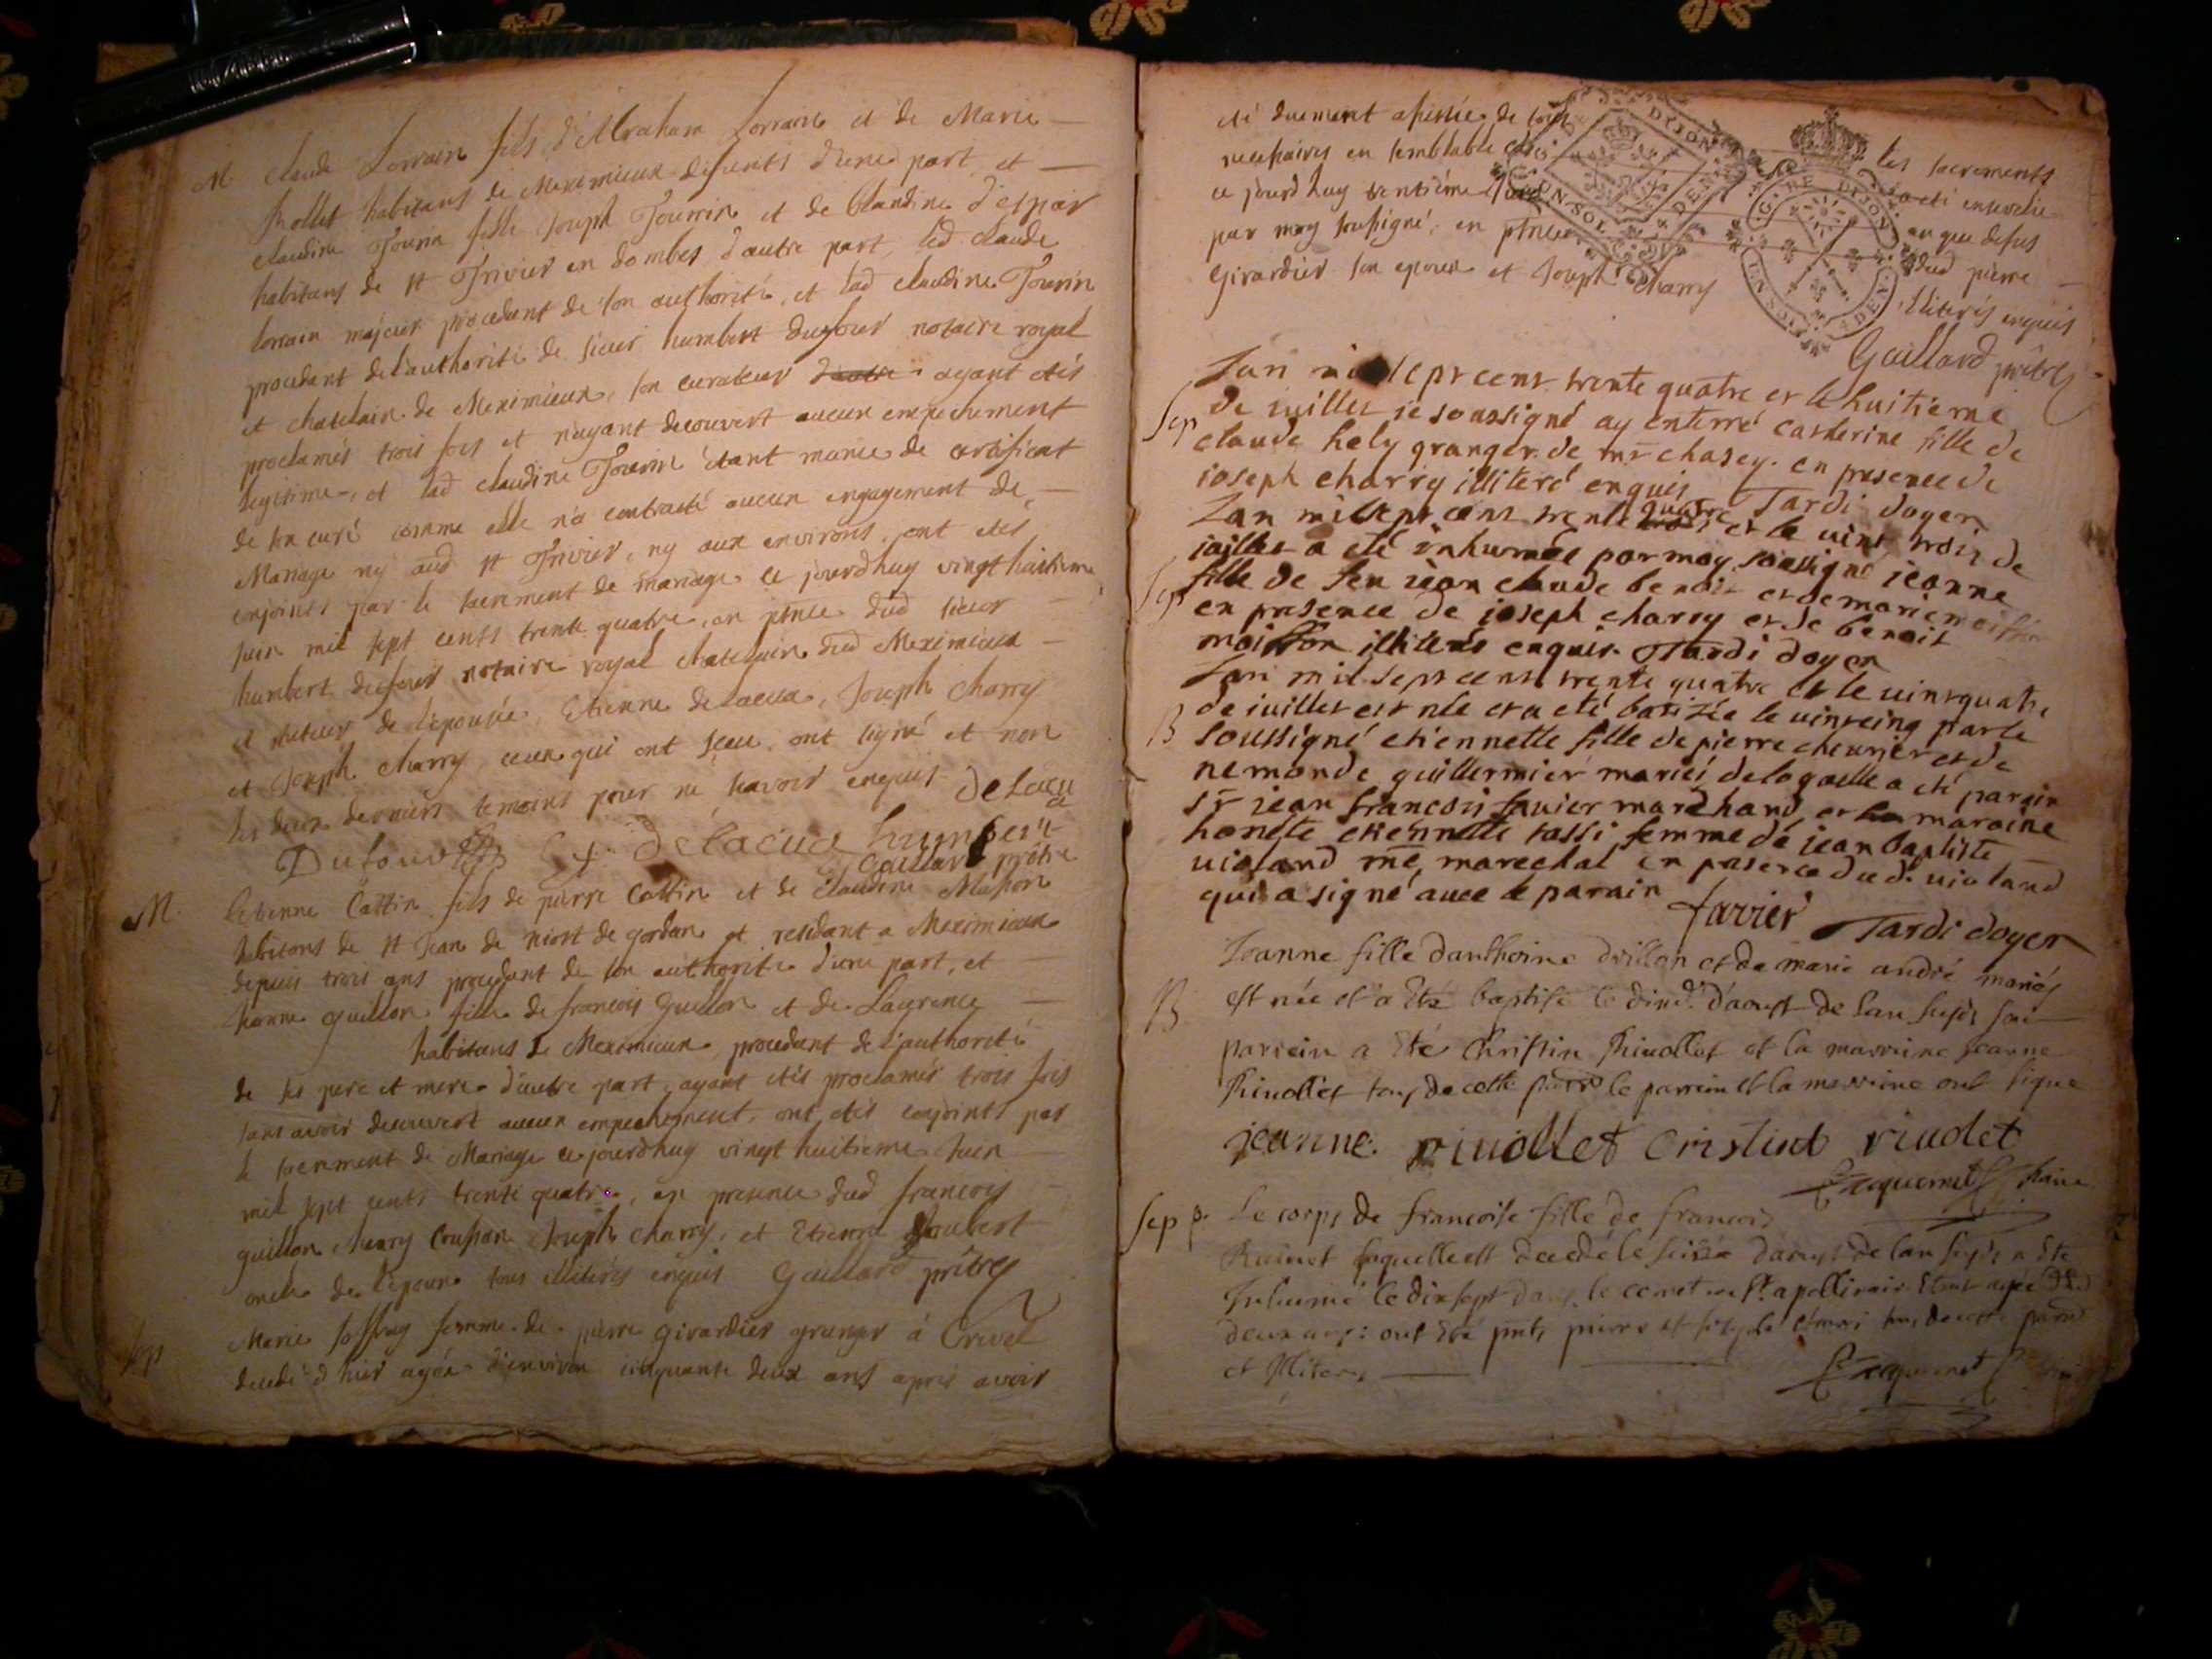 M Claude Lorrain fils d'Abraham Lorrain et de Marie
Rollet habitans de Meximieux defunts d'une part, et
claudine Tourin fille Joseph Tourrin et de Claudine d'espar
habitans de st Trivier en dombes d'autre part, led claude
lorrain majeur procedant de son authorité, et lad claudine Tourrin
procedant de l'authorité de sieur humbert dufour notaire royal
et chatelain de Meximieux, son curateur ayant étés
proclamés trois fois et n'ayant decouvert aucun empechement
legitime, et lad claudine Tourin étant munie de certificat
de son curé comme elle n'a contracté aucun engagement de
Mariage ny aud st Trivier, ny aux environs, ont étés
conjoints par le sacrement de mariage ce jourdhuy vingt huitieme
juin mil sept cents trente quatre, en pnce dud sieur
humbert dufour notaire royal chatelain dud Meximieux
et tuteur de l'epousée, Etienne delacua, Joseph Charry
et Joseph charry, ceux qui ont sçeu ont signé et non
les deux derniers temoins pour ne scavoir enquis delacua
Dufour delacua humbert
Gaillard prêtre
M. Etienne Cattin fils de pierre Cattin et de claudine Masson
habitans de st Jean de niost de gordan et residant a Meximieux
depuis trois ans procedant de son authorité d'une part, et
jeanne guillon fille de françois Guillon et de Laurence
habitans de Meximieux, procedant de l'authorité
de ses pere et mere d'autre part, ayant étés proclamés trois fois
sans avoir decouvert aucun empechement, ont étés conjoints par
le sacrement de Mariage ce jourdhuy vingt huitieme juin
mil sept cents trente quatre, en presence dud françois
guillon, henry Couson Joseph charry, et Etienne Joubert
oncle de l'epouse tous illiterés enquis Gaillard prêtre
Sep Marie Joffray femme de pierre girardier granger à Crevel
decedé d'hier agée d'environ cinquante deux ans après avoir
été duement assistée de tous les sacrements
necessaires en semblable cas a été ensevelie
ce jourdhuy trentième juin an que dessus
par moy soussigné, en pnce dud pierre
Girardier son epoux et Joseph Charry illiterés enquis
Gaillard prêtre
Lan mil sept cent trente quatre et le huitieme
Sep de iuillet ie soussigné ay enterré catherine fille de
claude hely granger de mr chasey. en presence de
ioseph charry illiteré enquis Tardi doyen
Lan mil sept cent trente quatre et le uint trois de
iuillet a eté inhumée par moy soussigné ieanne
Sep fille de feu iean claude benoit et de marie moisson
en presence de ioseph charry et de benoit
moisson illiterés enquis. Tardi doyen
Lan mil sept cent trente quatre et le uint quatre
de iuillet est née et a eté batizée le uintcinq par le
B soussigné etiennette fille de pierre cheurier et de
nemonde guillermier mariés, de laquelle a eté parain
sr iean francois fauier marchand, et la maraine
honete etiennette tassi femme de iean baptiste
uioland me, marechal en presence dud. uioland
qui a signé auec le parain favier Tardi doyen
Jeanne fille d'anthoine drillon et de marie andré mariés
B est née et a Eté baptisé le dixe d'aoust de lan susdt son
parrein a Eté Christin Riuollet et la marraine Jeanne
Riuollet tous de cette parre le parrein et la marraine ont signe
jeanne riuollet cristint riuolet
Jacquemet
Sep p. Le corps de francoise fille de francois
laquelle est decedé le seize daoust de lan susdt a Eté
Inhumé le dix sept dans le cemet. de St. apollinair Etant agée de
deux ans: ont Eté pnts pierre et tous de cette parre
et Illiter,
Jacquemet